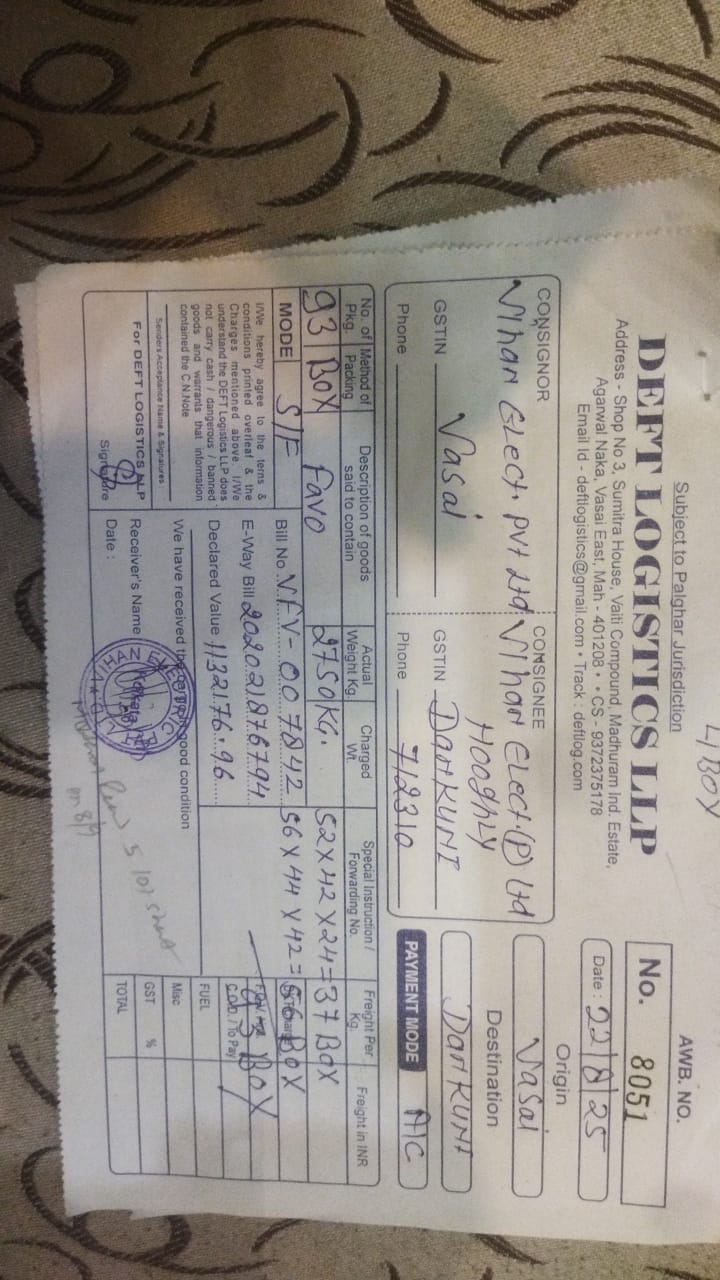 4 BOX
Subject to Palghar Jurisdiction
DEFT LOGISTICS LLP
Address - Shop No 3, Sumitra House, Vaiti Compound, Madhuram Ind. Estate,
Agarwal Naka, Vasai East, Mah - 401208 • CS - 9372375178
Email Id - deftlogistics@gmail.com • Track : deftlog.com
AWB. NO.
No. 8051
Date : 22/8/25
Origin
Vasai
Destination
DanKUNI
PAYMENT MODE A/C
CONSIGNOR
Vihan Elect. Pvt Ltd
Vasai
GSTIN
Phone
CONSIGNEE
Vihan Elect. (P) Ltd
Hooghly
GSTIN DanKUNI
Phone 712310
No. of Pkg. Method of Packing Description of goods said to contain Actual Weight Kg. Charged Wt. Special Instruction / Forwarding No. Freight Per Kg. Freight in INR
93 BOX Favo 2750KG. 52X42X24=37BOX
MODE S/F Bill No VFV-007842 56X44X42=56BOX
93 BOX
E-Way Bill 202021876794
Declared Value 1132176.96
C.O.D. / To Pay
FUEL
Misc
GST %
TOTAL
I/We hereby agree to the terms &
conditions printed overleaf & the
Charges mentioned above I/We
understand the DEFT Logistics LLP does
not carry cash / dangerous / banned
goods and warrants that information
contained the C.N.Note
Senders Acceptance Name & Signatures :
For DEFT LOGISTICS LLP
Signature
We have received the goods in good condition
Receiver's Name
Date :
VIHAN ELECTRIC
Kolkata